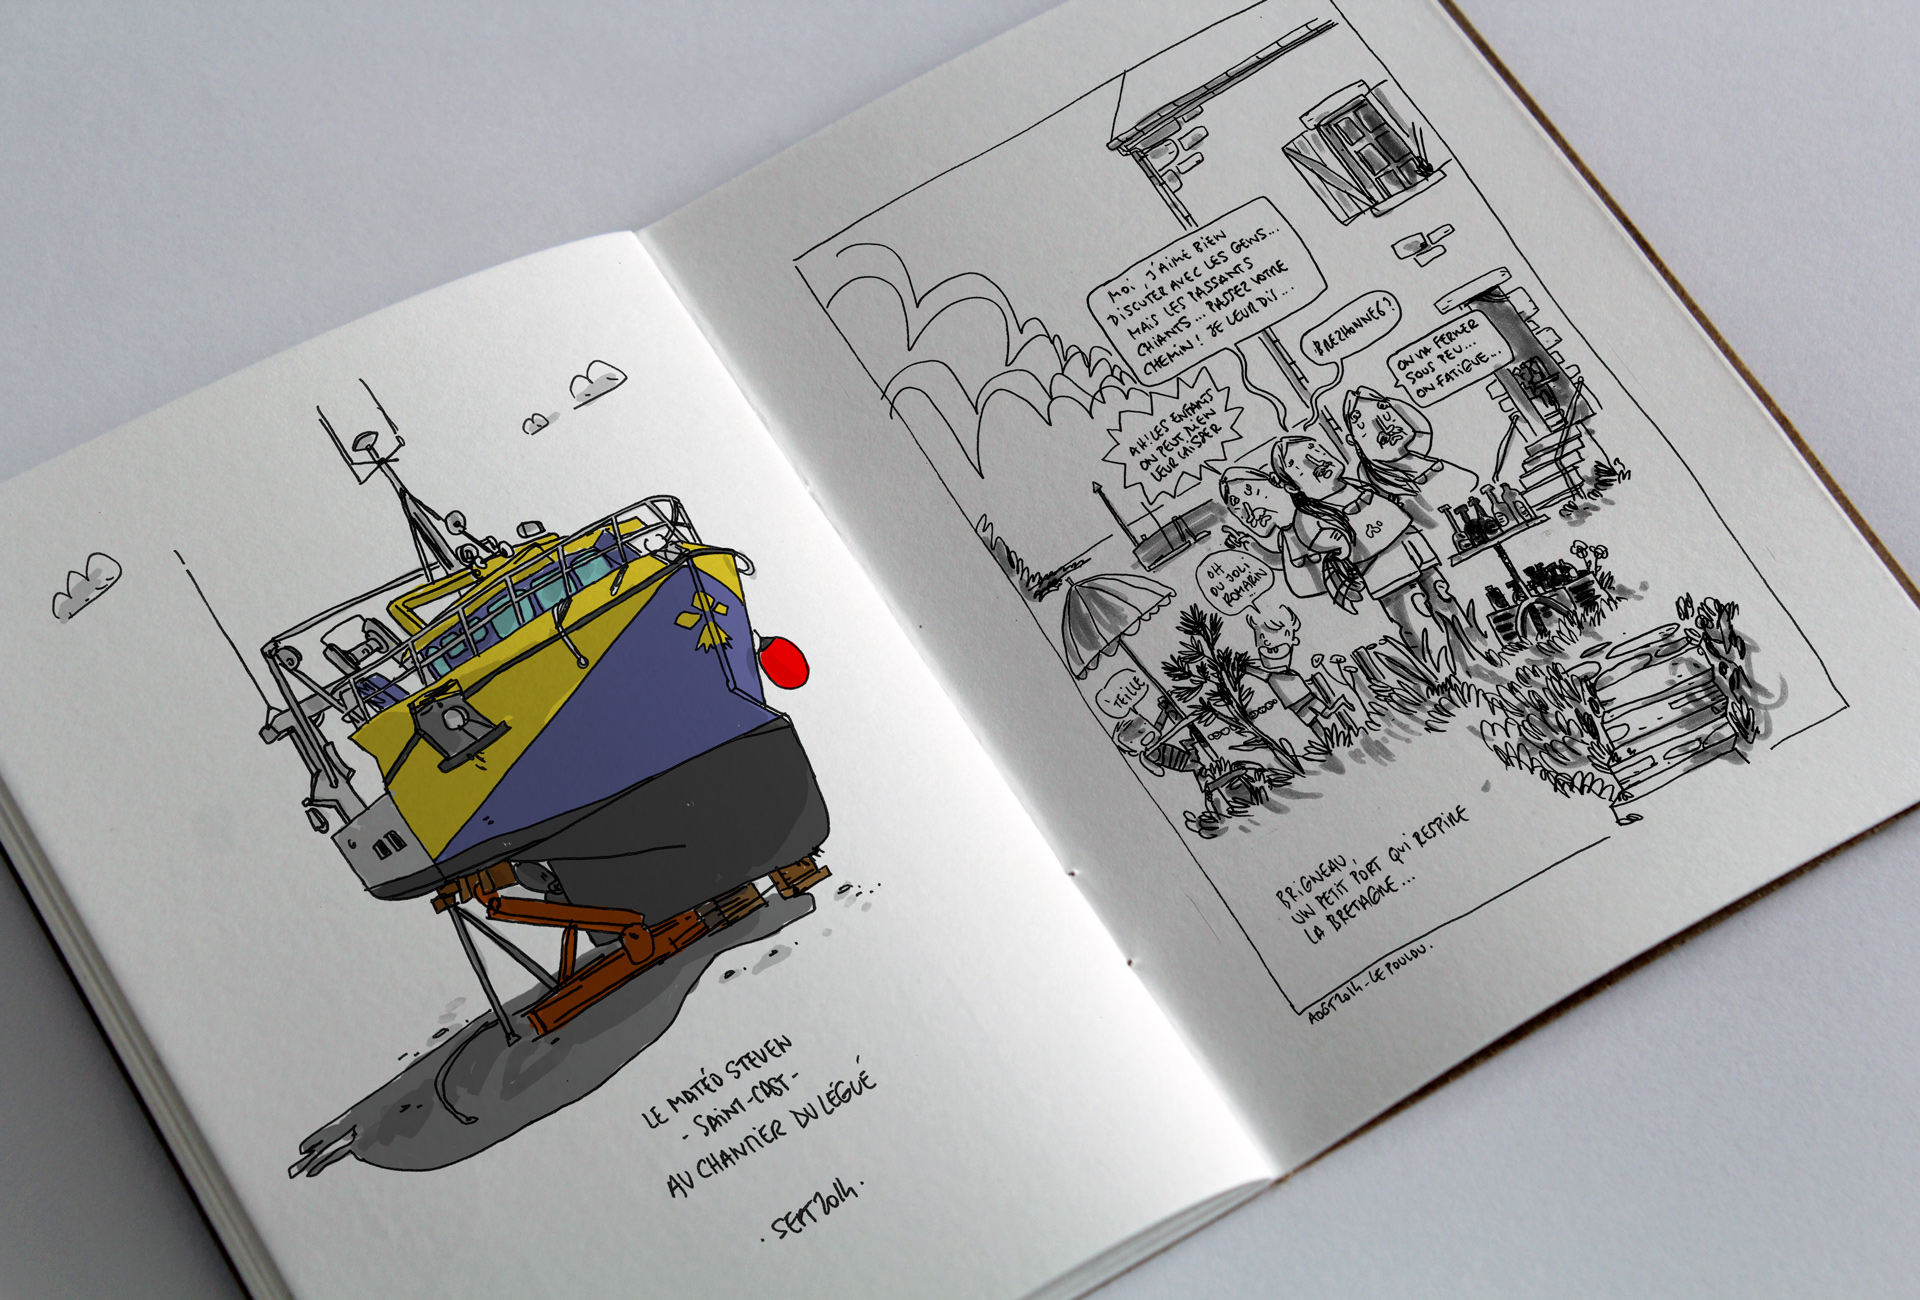 LE MATÉO STEVEN
- SAINT-CAST -
AU CHANTIER DU LÉGUÉ
. SEPT 2014.
MOI, J'AIME BIEN
DISCUTER AVEC LES GENS...
MAIS LES PASSANTS
CHIANTS... PASSEZ VOTRE
CHEMIN! JE LEUR DIS...
BREZHONNEG?
ON VA FERMER
SOUS PEU...
ON FATIGUE...
AH! LES ENFANTS
ON PEUT RIEN
LEUR LAISSER
OH
DU JOLI
ROMARIN
'TEILLE
BRIGNEAU,
UN PETIT PORT QUI RESPIRE
LA BRETAGNE...
AOÛT 2014 - LE POULDU.